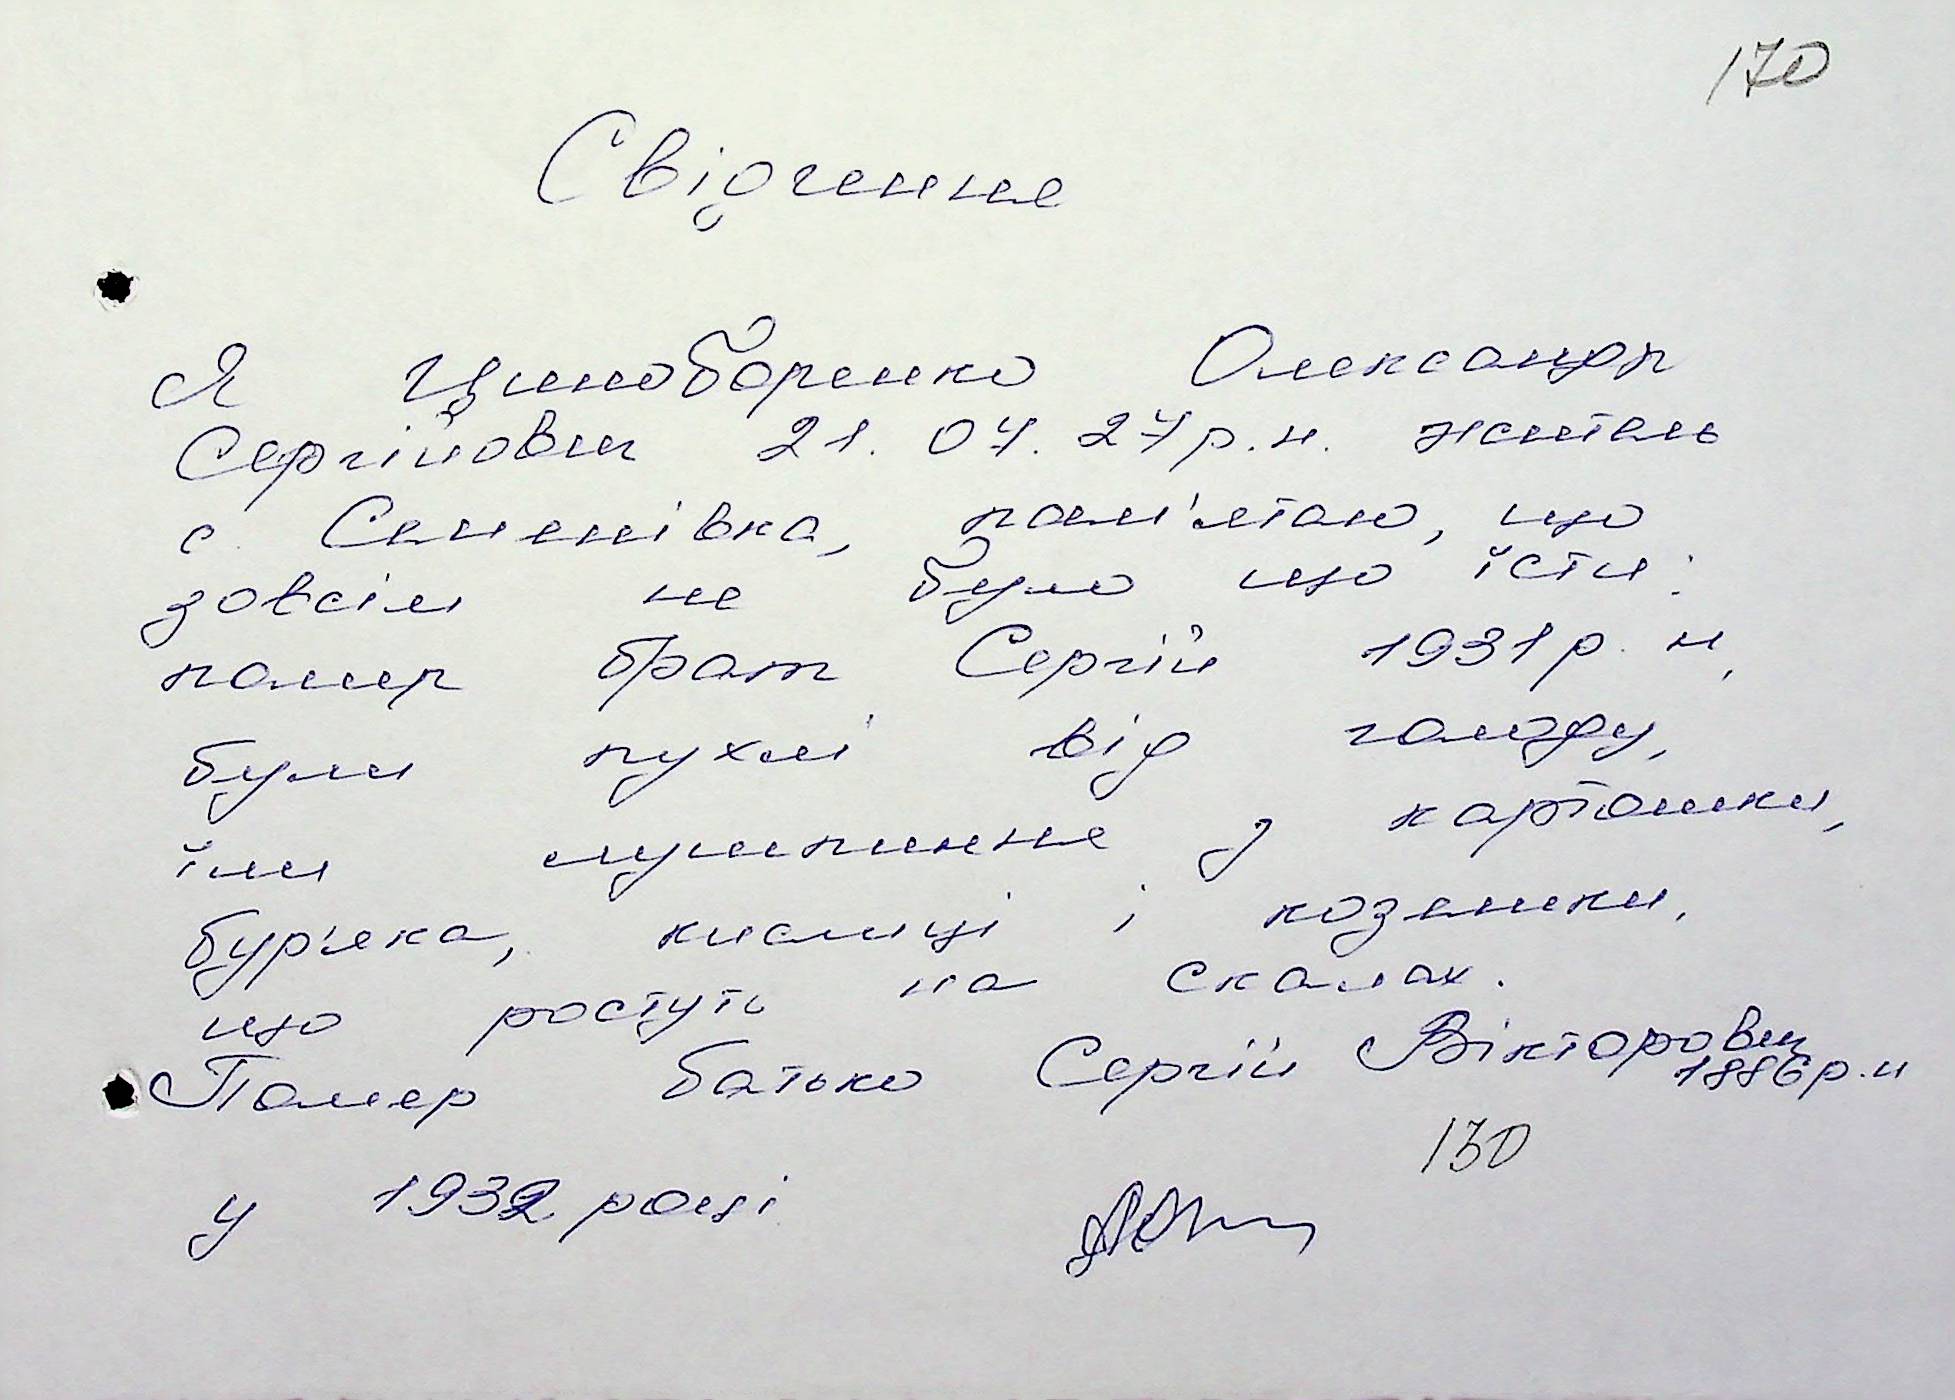 170
Свідчення
Я Циноборенко Олександр
Сергійович 21. 04. 27 р.н. житель
с. Семенівка, пам'ятаю, що
зовсім не було що їсти:
помер брат Сергій 1931 р. н,
були пухлі від голоду,
їли лушпиння з картошки,
бур'яка, кислиці і козельки,
що ростуть на скалах.
Помер батько Сергій Вікторович
1886 р.н
130
у 1932 році